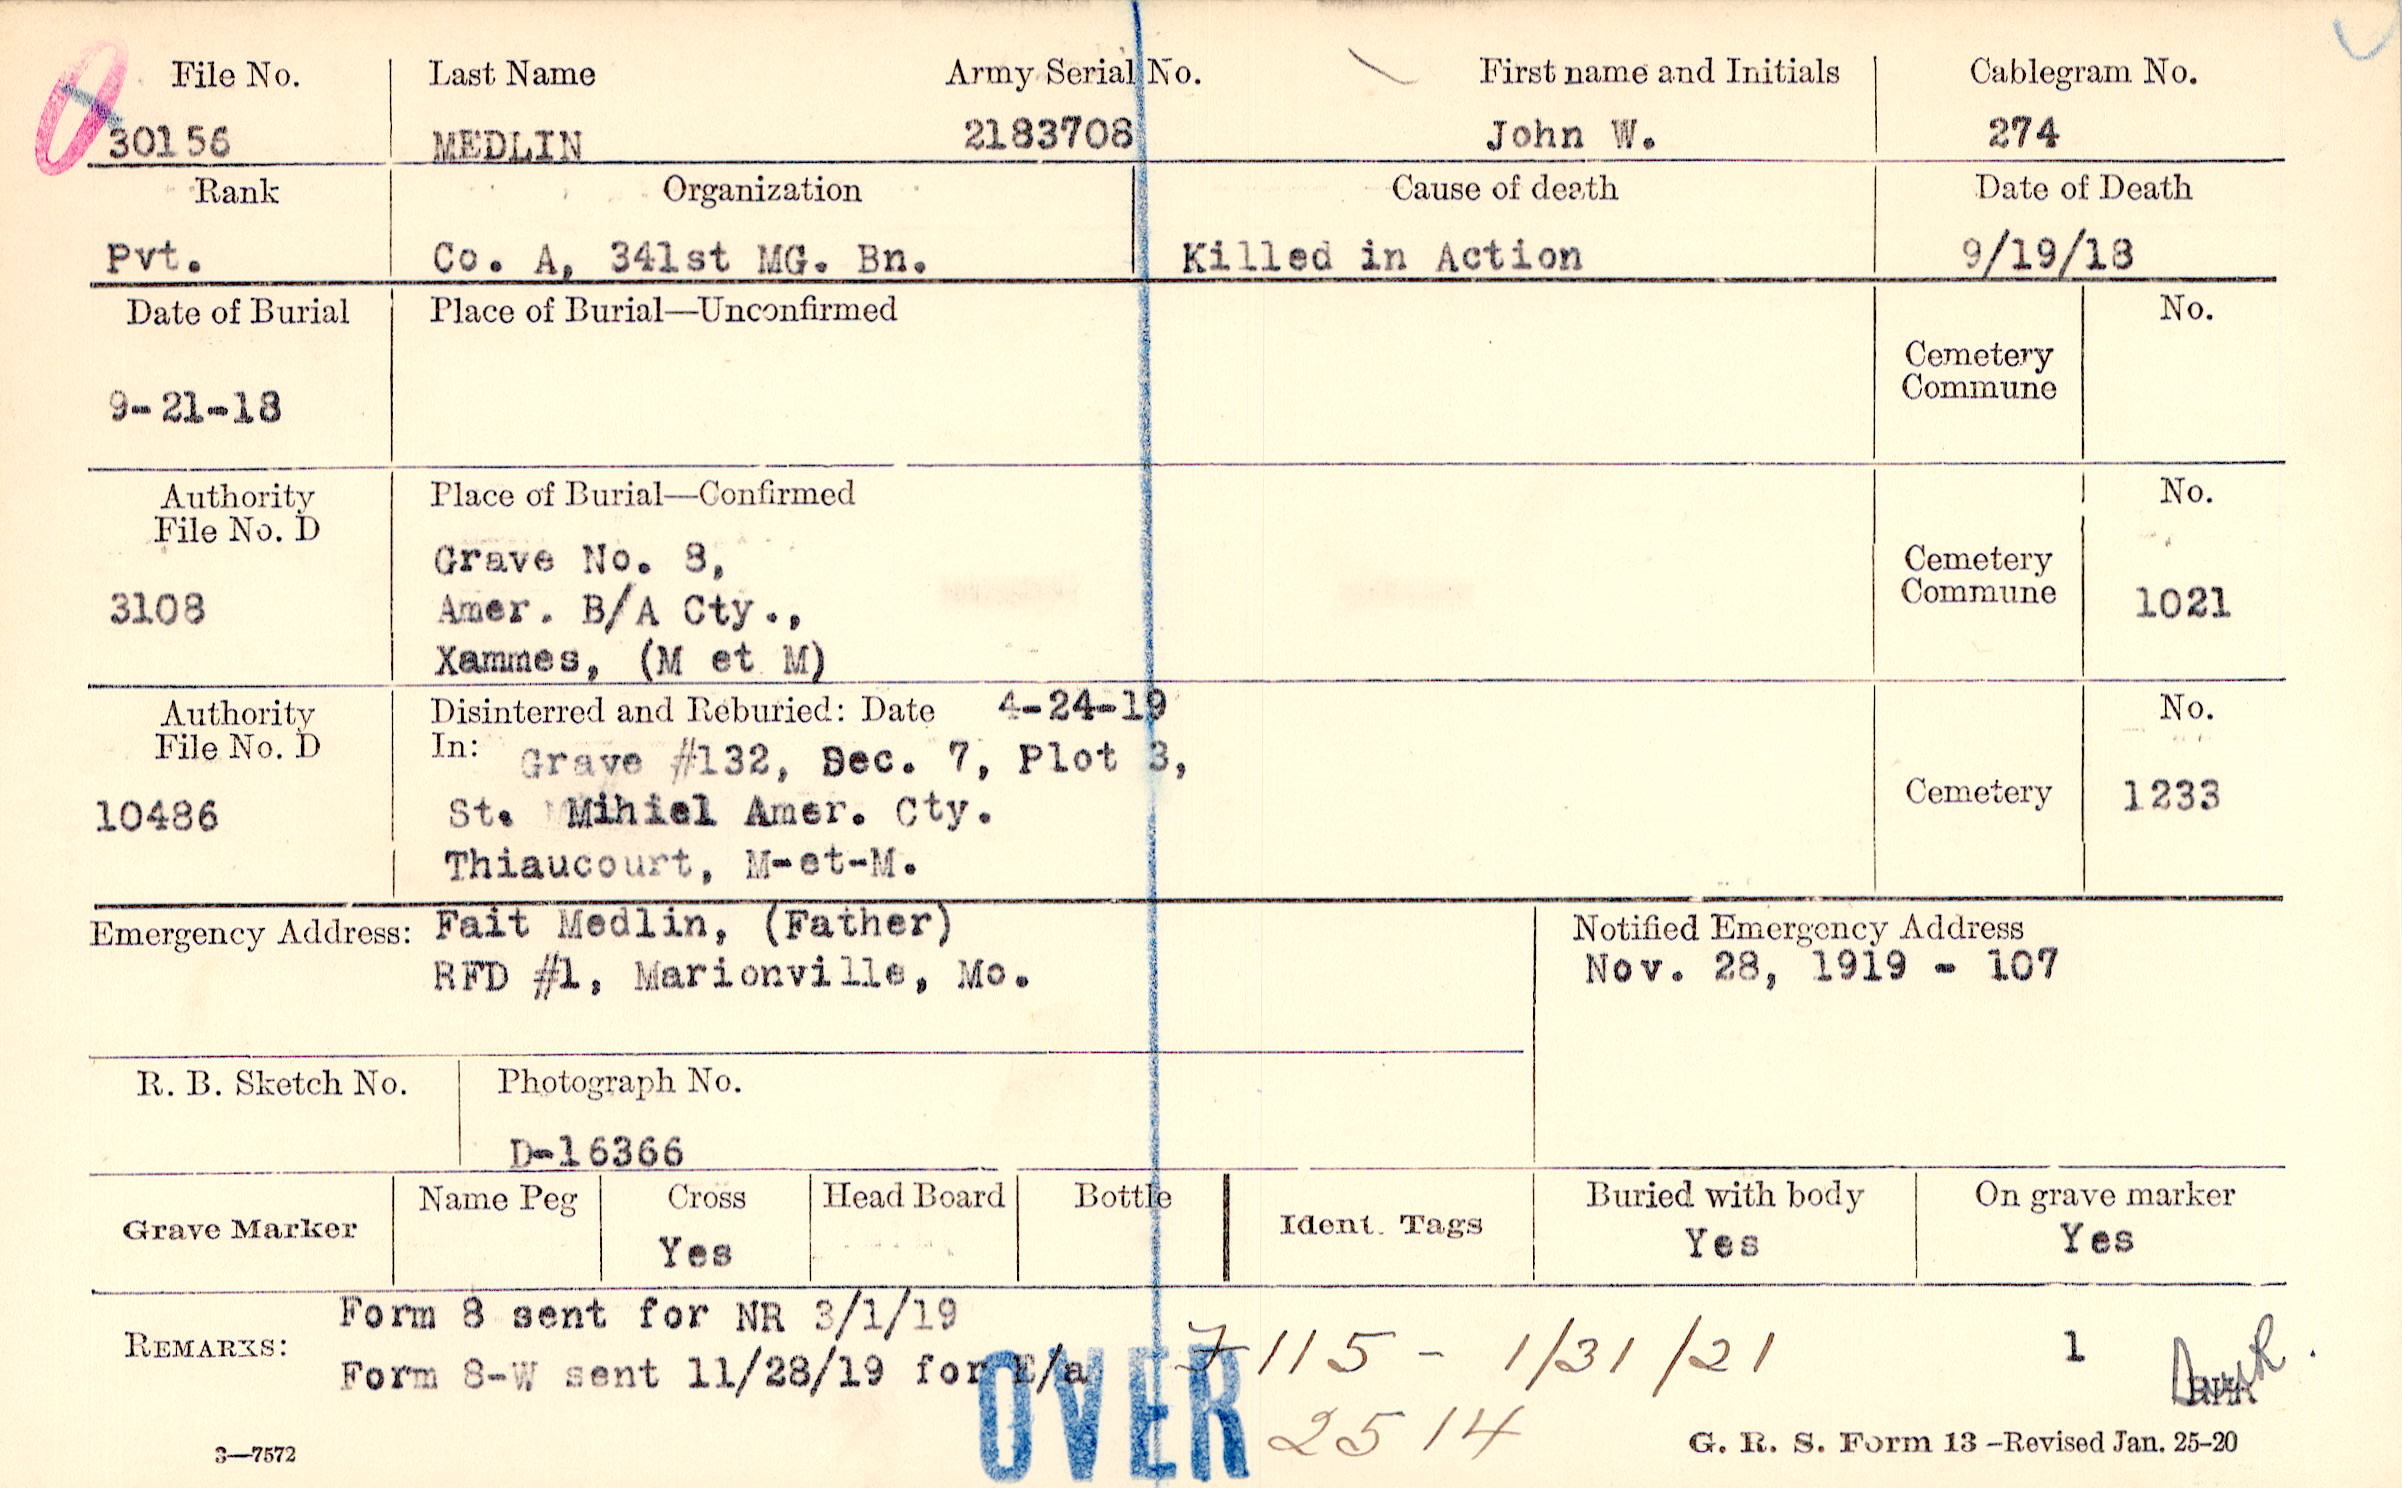 File No. Last Name Army Serial No. First name and Initials Cablegram No.
30156 MEDLIN 2183708 John W. 274
Rank Organization Cause of death Date of Death
Pvt. Co. A, 341st MG. Bn. Killed in Action 9/19/18
Date of Burial Place of Burial—Unconfirmed No.
Cemetery
Commune
9-21-18
Authority Place of Burial—Confirmed No.
File No. D
Grave No. 8, Cemetery
3108 Amer. B/A Cty., Commune 1021
Xammes, (M et M)
Authority Disinterred and Reburied: Date 4-24-19 No.
File No. D In: Grave #132, Sec. 7, Plot 3,
10486 St. Mihiel Amer. Cty. Cemetery 1233
Thiaucourt, M-et-M.
Emergency Address: Fait Medlin, (Father) Notified Emergency Address
RFD #1, Marionville, Mo. Nov. 28, 1919 - 107
R. B. Sketch No. Photograph No.
D-16366
Grave Marker Name Peg Cross Head Board Bottle Ident. Tags Buried with body On grave marker
Yes Yes Yes
REMARKS: Form 8 sent for NR 3/1/19
Form 8-W sent 11/28/19 for E/a 7115 - 1/31/21 1
OVER 2514
3—7572 G. R. S. Form 13—Revised Jan. 25-20